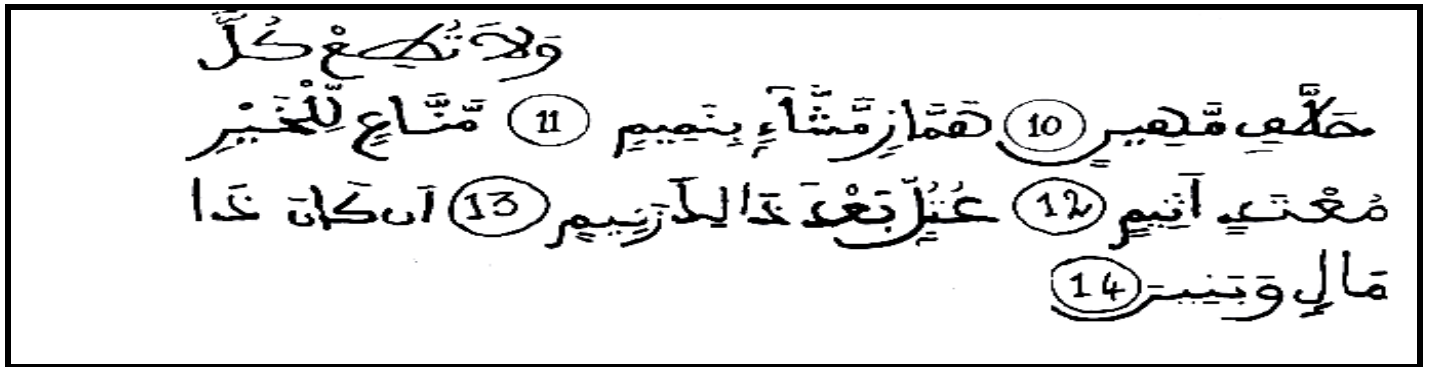 وَلَا تُطِعْ كُلَّ
حَلَّافٍ مَّهِينٍ 10 هَمَّازٍ مَّشَّآءٍ بِنَمِيمٍ 11 مَّنَّاعٍ لِّلْخَيْرِ
مُعْتَدٍ اَثِيمٍ 12 عُتُلٍّ بَعْدَ ذَالِكَ زَنِيمٍ 13 اَن كَانَ ذَا
مَالٍ وَبَنِينَ 14